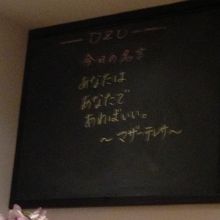 OZU
今日の名言
あなたは
あなたで
あればいい。
～マザーテレサ～